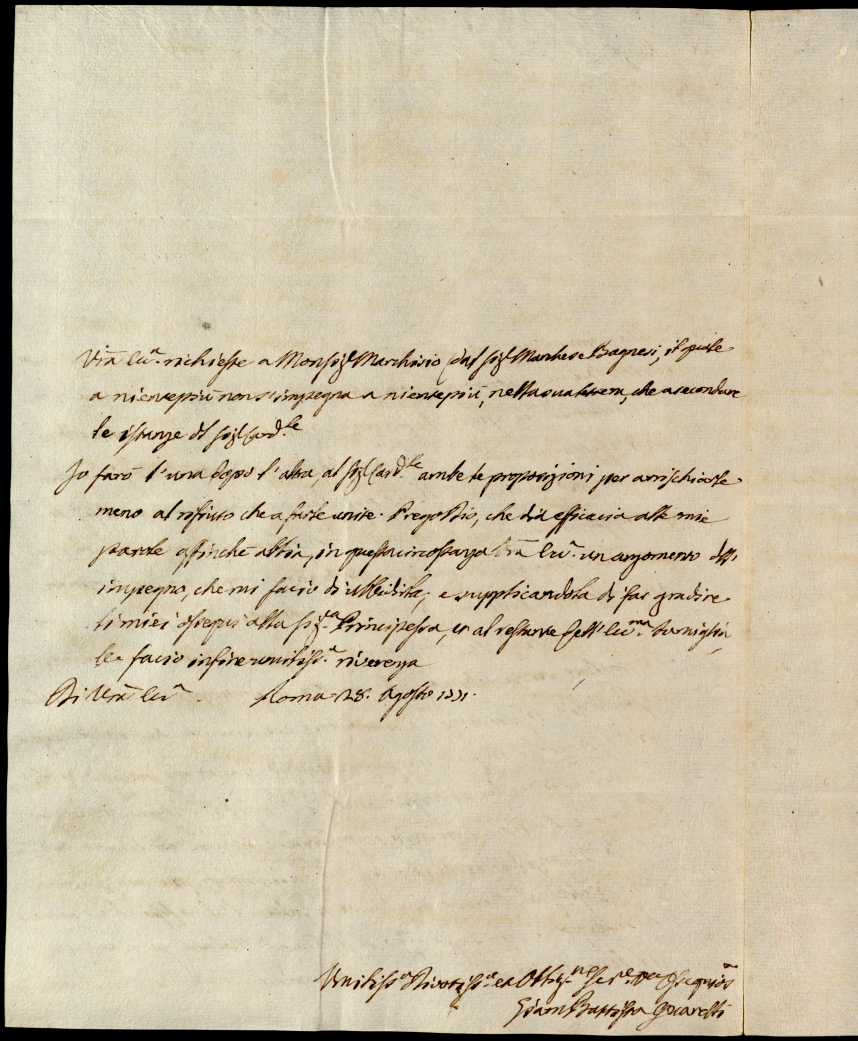 Vrã Ecc.ª richieste a Monsig.r Marchisio (dal sig.r Marchese Bagnesi, il quale
a niente più non s'impegna a niente più, nella sua lettera, che a secondare
le istanze del sig.r Card.le
Io farò l'una dopo l'altra, al sig.r Card.le ambe le proposizioni per arrischiarle
meno al rifiuto che a farle unite. Prego Dio, che dia efficacia alle mie
parole affinchè abbia, in questa circostanza Vrã Ecc.ª un argomento dell'
impegno, che mi facio di ubbidirla; e supplicandola di far gradire
li miei ossequi alla sig.ra Principessa, et al restante dell'Ecc.ma famiglia,
le facio infine umiliss.ª riverenza
Di Vrã Ecc.ª Roma 28. Agosto
Umiliss.o Divotiss.o ed Obblig.mo Ser.re Ossequios.o
Giam Battista